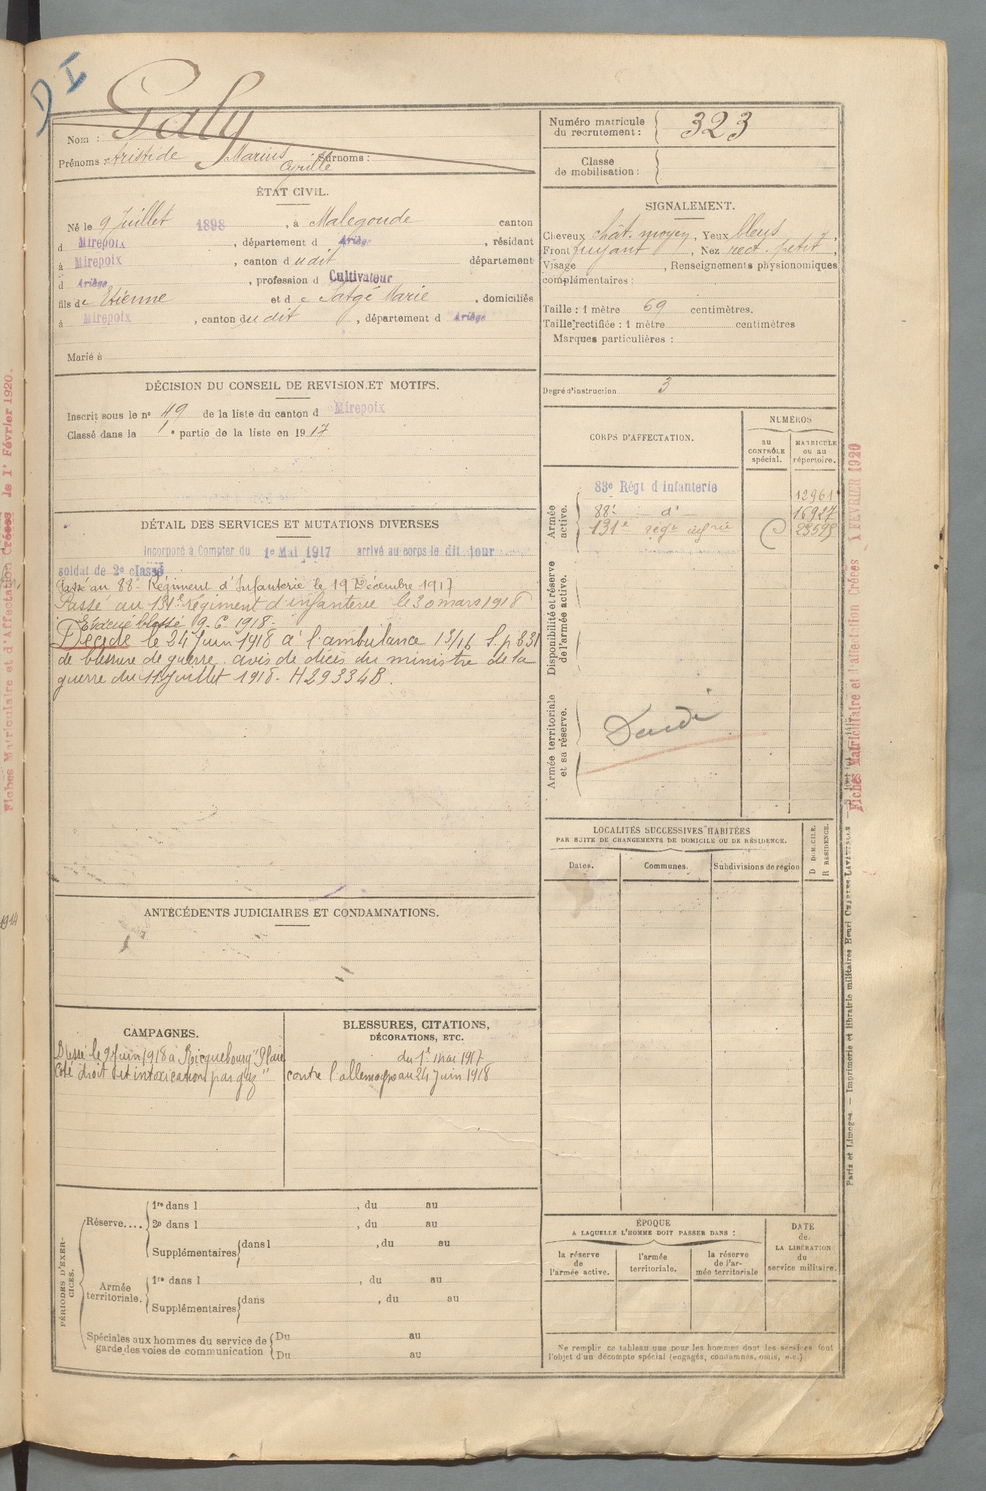 D I
Galy
Nom :
Prénoms : Aristide Marius Cyrille Surnoms :
Numéro matricule
du recrutement : 323
Classe
de mobilisation :
ÉTAT CIVIL.
Né le 9 Juillet 1898, à Malegoude canton
d Mirepoix, département d Ariège, résidant
à Mirepoix, canton dudit département
d Ariège, profession d Cultivateur
fils de Etienne et de Satgé Marie, domiciliés
à Mirepoix, canton dudit, département d Ariège
Marié à
SIGNALEMENT.
Cheveux chât. moyen, Yeux bleus,
Front fuyant, Nez rect. petit,
Visage, Renseignements physionomiques
complémentaires :
Taille : 1 mètre 69 centimètres.
Taille rectifiée : 1 mètre centimètres
Marques particulières :
Degré d'instruction 3
DÉCISION DU CONSEIL DE REVISION ET MOTIFS.
Inscrit sous le no 49 de la liste du canton d Mirepoix
Classé dans la 1e partie de la liste en 1917
CORPS D'AFFECTATION.
NUMÉROS
AU CONTRÔLE spécial.
MATRICULE ou au répertoire.
Armée active.
83e Régt d'Infanterie 12961
88e — do — 16927
131e regt infrie 23595
Disponibilité et réserve de l'armée active.
Armée territoriale et sa réserve.
Décédé
DÉTAIL DES SERVICES ET MUTATIONS DIVERSES
Incorporé à Compter du 1er Mai 1917 arrivé au corps le dit jour
soldat de 2e classe
Passé au 88e Régiment d'Infanterie le 19 Décembre 1917
Passé au 131e régiment d'infanterie le 30 mars 1918
Evacué blessé 9.6.1918.
Décédé le 24 Juin 1918 à l'ambulance 15/16 S.p 831
de blessure de guerre. avis de décès du ministre de la
guerre du 11 juillet 1918. H29334B.
ANTÉCÉDENTS JUDICIAIRES ET CONDAMNATIONS.
LOCALITÉS SUCCESSIVES HABITÉES
PAR SUITE DE CHANGEMENTS DE DOMICILE OU DE RÉSIDENCE.
Dates.
Communes.
Subdivisions de région
D DOMICILE.
R RÉSIDENCE.
CAMPAGNES.
Blessé le 9 Juin 1918 à Ricquebourg "Plaie
côté droit et intoxication par gaz"
BLESSURES, CITATIONS,
DÉCORATIONS, ETC.
du 1e mai 1917
contre l'allemagne au 24 Juin 1918
PÉRIODES D'EXERCICES.
Réserve....
1re dans l , du au
2e dans l , du au
Supplémentaires dans l , du au
Armée territoriale.
1re dans l , du au
Supplémentaires dans , du au
Spéciales aux hommes du service de
garde des voies de communication
Du au
Du au
ÉPOQUE
A LAQUELLE L'HOMME DOIT PASSER DANS :
la réserve de l'armée active.
l'armée territoriale.
la réserve de l'armée territoriale
DATE de LA LIBÉRATION du service militaire.
Ne remplir ce tableau que pour les hommes dont les services font
l'objet d'un décompte spécial (engagés, condamnés, omis, etc.)
Paris et Limoges. — Imprimerie et librairie militaires Henri CHARLES-LAVAUZELLE
Fiches Matriculaire et d'Affectation Créées le 1er Février 1920.
Fiches Matriculaire et d'affectation Créées 1 FÉVRIER 1920